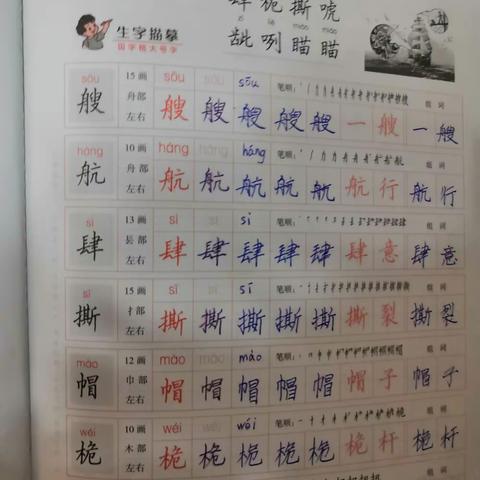 肆 桅 撕 唬
生字描摹
田字格大号字
龇 咧 瞄 瞄
sōu 15画 sōu sōu sōu 笔顺: 组词
艘 舟部 左右 艘 艘 艘 艘 艘 一 艘 一 艘
háng 10画 háng háng háng 笔顺: 组词
航 舟部 左右 航 航 航 航 航 航 行 航 行
sì 13画 sì sì sì 笔顺: 组词
肆 镸部 左右 肆 肆 肆 肆 肆 肆 意 肆 意
sī 15画 sī sī sī 笔顺: 组词
撕 扌部 左右 撕 撕 撕 撕 撕 撕 裂 撕 裂
mào 12画 mào mào mào 笔顺: 组词
帽 巾部 左右 帽 帽 帽 帽 帽 帽 子 帽 子
wéi 10画 wéi wéi wéi 笔顺: 组词
桅 木部 左右 桅 桅 桅 桅 桅 桅 杆 桅 杆